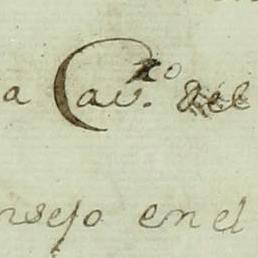 a Cav.ro del
nsejo en el